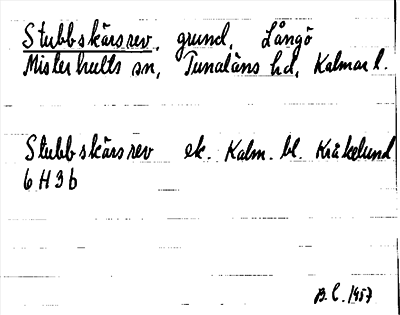 Stubbskärsrev, grund, Långö
Misterhults sn, Tunaläns hd, Kalmar l.
Stubbskärsrev ek. Kalm. bl. Kråkelund
6 H 3 b
B.C. 1957